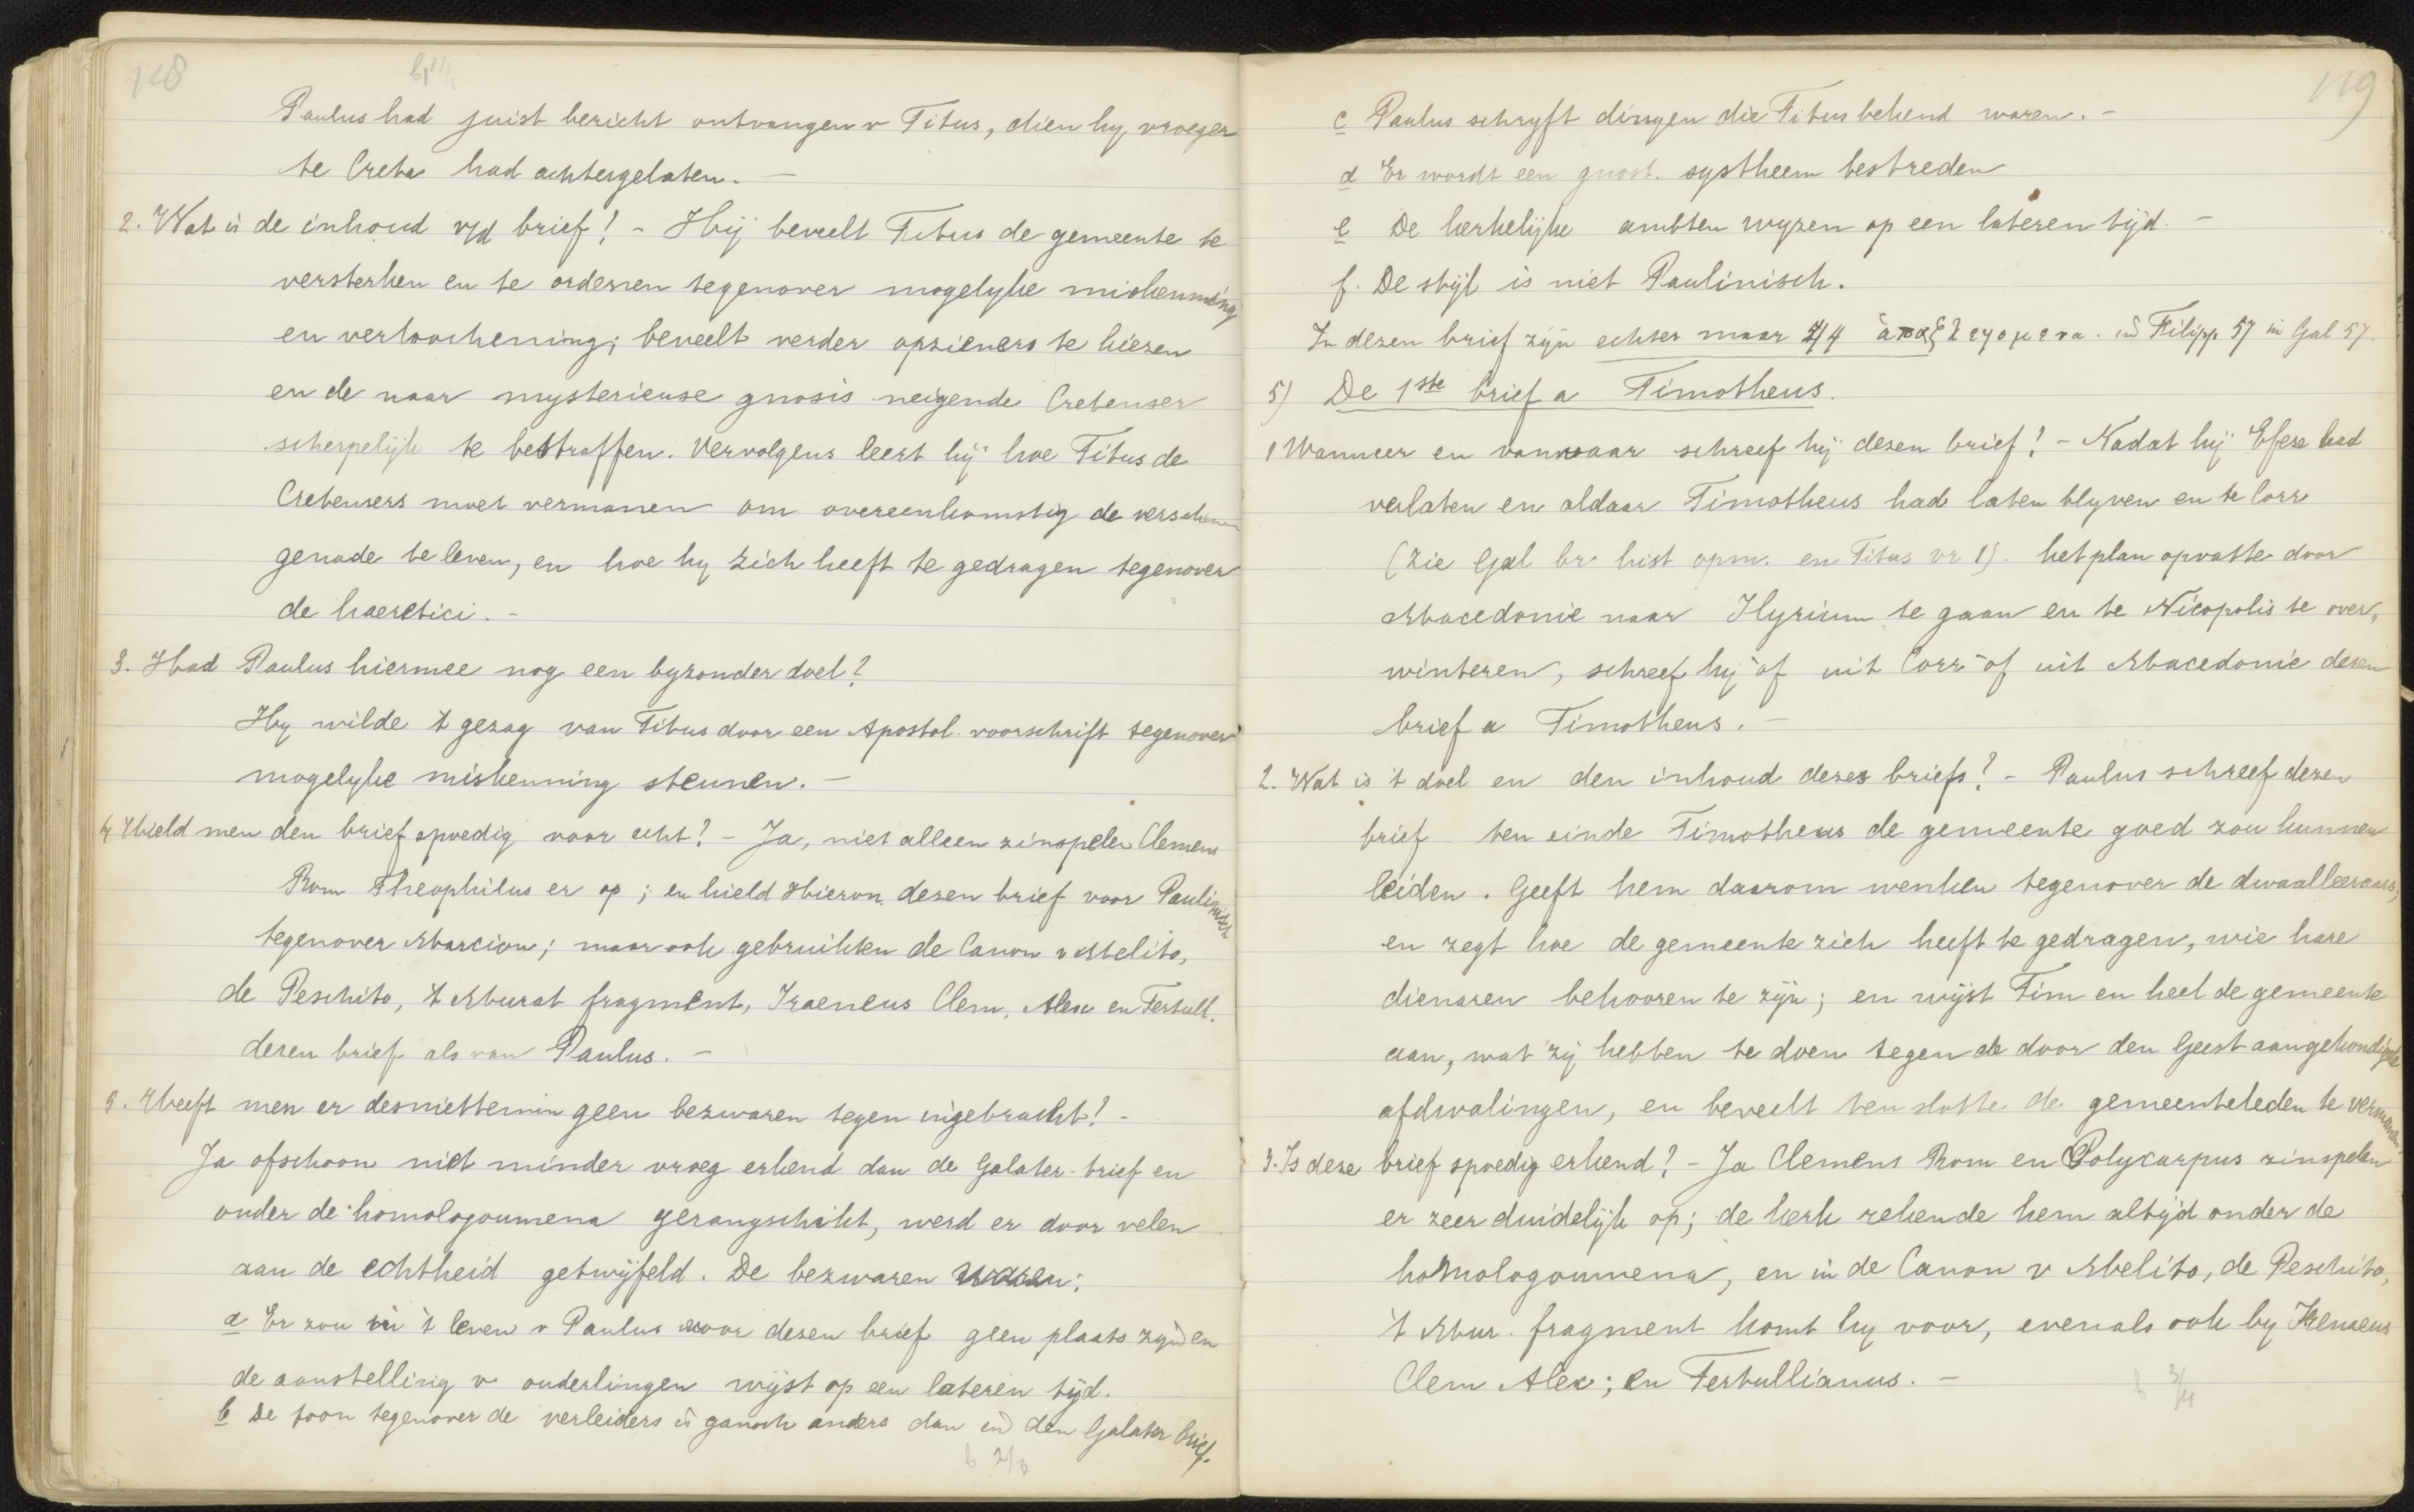 118
Paulus had juist bericht ontvangen v Titus, dien hy vroeger
te Creta had achtergelaten. —
2. Wat is de inhoud v/d brief? - Hij beveelt Titus de gemeente te
versterken en te ordenen tegenover mogelyke miskenning
en verloochening; beveelt verder opzieners te kiezen
en de naar mysterieuse gnosis neigende Cretenser
scherpelijk te bestraffen. Vervolgens leert hij hoe Titus de
Cretensers moet vermanen om overeenkomstig de verschenen
genade te leven, en hoe hy zich heeft te gedragen tegenover
de haeretici. -
3. Had Paulus hiermee nog een byzonder doel?
Hy wilde 't gezag van Titus door een Apostol. voorschrift tegenover
mogelyke miskenning steunen. —
4 Hield men den brief spoedig voor echt? - Ja, niet alleen zinspelen Clemens
Rom Theophilus er op; en hield Hieron. dezen brief voor Paulinisch
tegenover Marcion; maar ook gebruikten de Canon v Melito,
de Peschito, 't Murat fragment, Iraeneus Clem, Alex en Tertull.
dezen brief als van Paulus. —
5. Heeft men er desniettemin geen bezwaren tegen ingebracht? -
Ja ofschoon niet minder vroeg erkend dan de Galater-brief en
onder de homologoumena gerangschikt, werd er door velen
aan de echtheid getwijfeld. De bezwaren waren:
a Er zou in 't leven v Paulus voor dezen brief geen plaats zijn en
de aanstelling v ouderlingen wijst op een lateren tijd.
b De toon tegenover de verleiders is gansch anders dan in den Galater brief.
b 2/3
119
c Paulus schryft dingen die Titus bekend waren. -
d Er wordt een gnost. systheem bestreden
e De kerkelijke ambten wyzen op een lateren tijd. -
f. De stijl is niet Paulinisch.
In dezen brief zijn echter maar 44 ἁπαξ λεγομενα. in Filipp. 57 in Gal 57.
5) De 1ste brief a Timotheus.
1 Wanneer en vanwaar schreef hij dezen brief? - Nadat hij Efese had
verlaten en aldaar Timotheus had laten blyven en te Corr
(zie Gal br hist opm. en Titus vr 1). het plan opvatte door
Macedonie naar Illyrium te gaan en te Nicopolis te over„
winteren, schreef hij òf uit Corr òf uit Macedonie dezen
brief a Timotheus. —
2. Wat is 't doel en den inhoud dezes briefs? - Paulus schreef dezen
brief ten einde Timotheus de gemeente goed zou kunnen
leiden. Geeft hem daarom wenken tegenover de dwaalleeraars;
en zegt hoe de gemeente zich heeft te gedragen, wie hare
dienaren behooren te zijn; en wijst Tim en heel de gemeente
aan, wat zij hebben te doen tegen de door den Geest aangekondigde
afdwalingen, en beveelt ten slotte de gemeenteleden te vermanen.
3. Is deze brief spoedig erkend? - Ja Clemens Rom en Polycarpus zinspelen
er zeer duidelijk op; de kerk rekende hem altijd onder de
homologoumena, en in de Canon v Melito, de Peschito,
't Mur. fragment komt hy voor, evenals ook by Irenaeus
Clem Alex; en Tertullianus. —
b 3/4